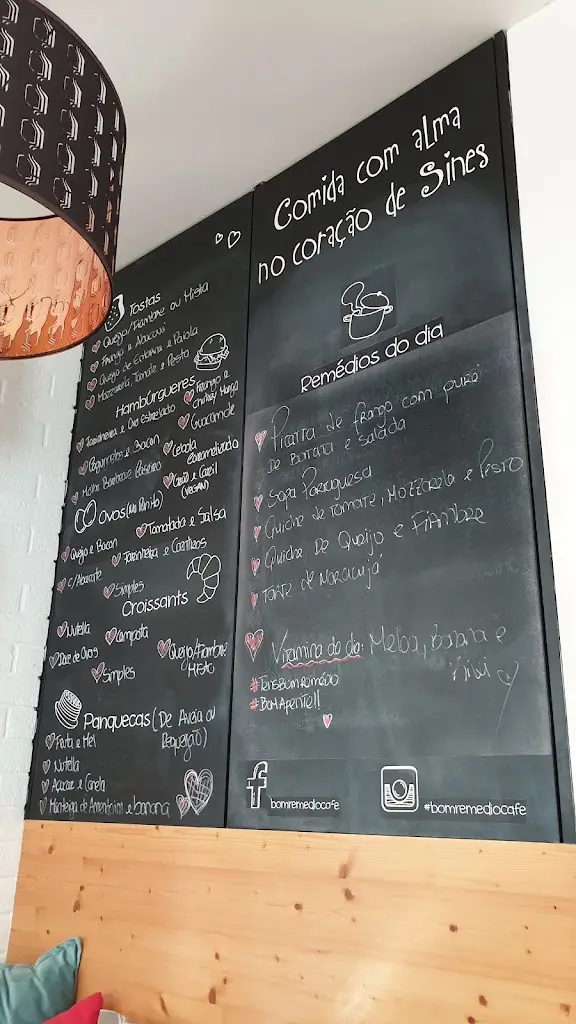 Comida com alma
no coração de Sines
Tostas
Queijo/Fiambre ou Mista
Frango e Abacaxi
Queijo de Cabra e Paiola
Mozzarela, Tomate e Pesto
Hambúrgueres
Farinheira e Ovo Estrelado
Cogumelos e Bacon
Molho Barbecue Caseiro
Frango e Chutney Manga
Guacamole
Cebola Caramelizada
Grão e Caril
(VEGAN)
Ovos (No Pãozinho)
Queijo e Bacon
Tomatada e Salsa
Farinheira e Coentros
c/Abacate
Simples
Croissants
Nutella
Compota
Doce de Ovos
Queijo/Fiambre
Misto
Simples
Panquecas (De Aveia ou
Requeijão)
Fruta e Mel
Nutella
Açúcar e Canela
Manteiga de Amendoim e banana
Remédios do dia
de frango com puré
De Batata e Salada
Sopa Portuguesa
Quiche de Tomate, Mozzarela e Pesto
Quiche De Queijo e Fiambre
Tarte de Maracujá
Vitamina do dia: Meloa, Banana e
Kiwi
#TensBomRemédio
#BOMApetite!!
bomremediocafe
#bomremediocafe